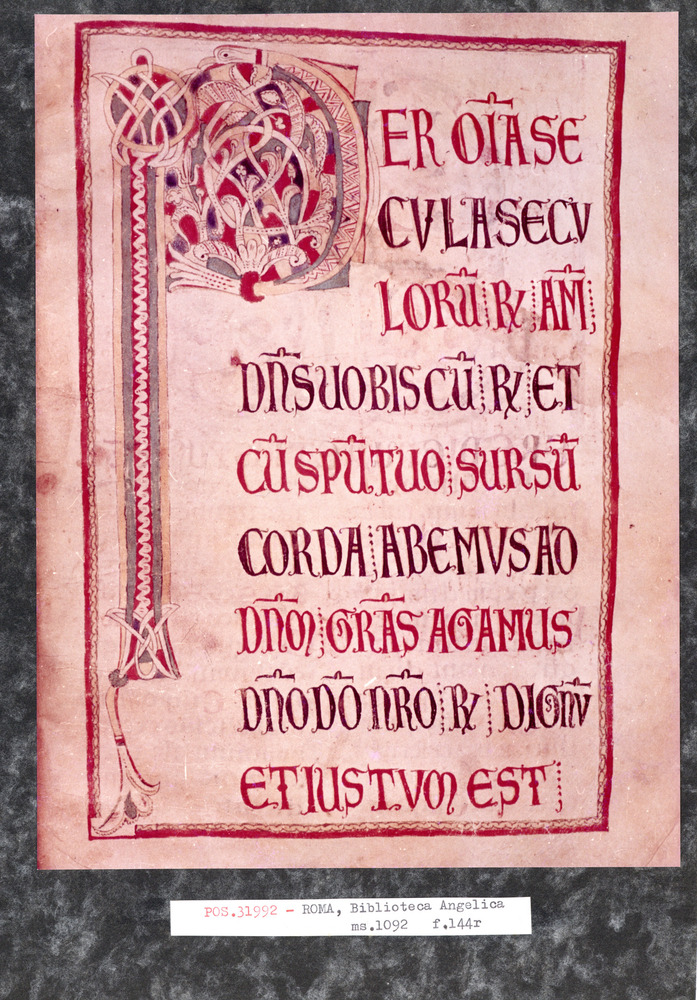 PER OĪASE
CVLASECV
LORŪ; R̸; AM̄;
DN̄SUOBISCŪ; R̸; ET
CŪ SPŪ TUO; SURSŪ
CORDA; ABEMVS AD
DN̄M; GR̄AS AGAMUS
DN̄O DŌ NR̄O; R̸; DIGNV̄
ET IUSTVM EST;
POS.31992 - ROMA, Biblioteca Angelica
ms.1092 f.144r